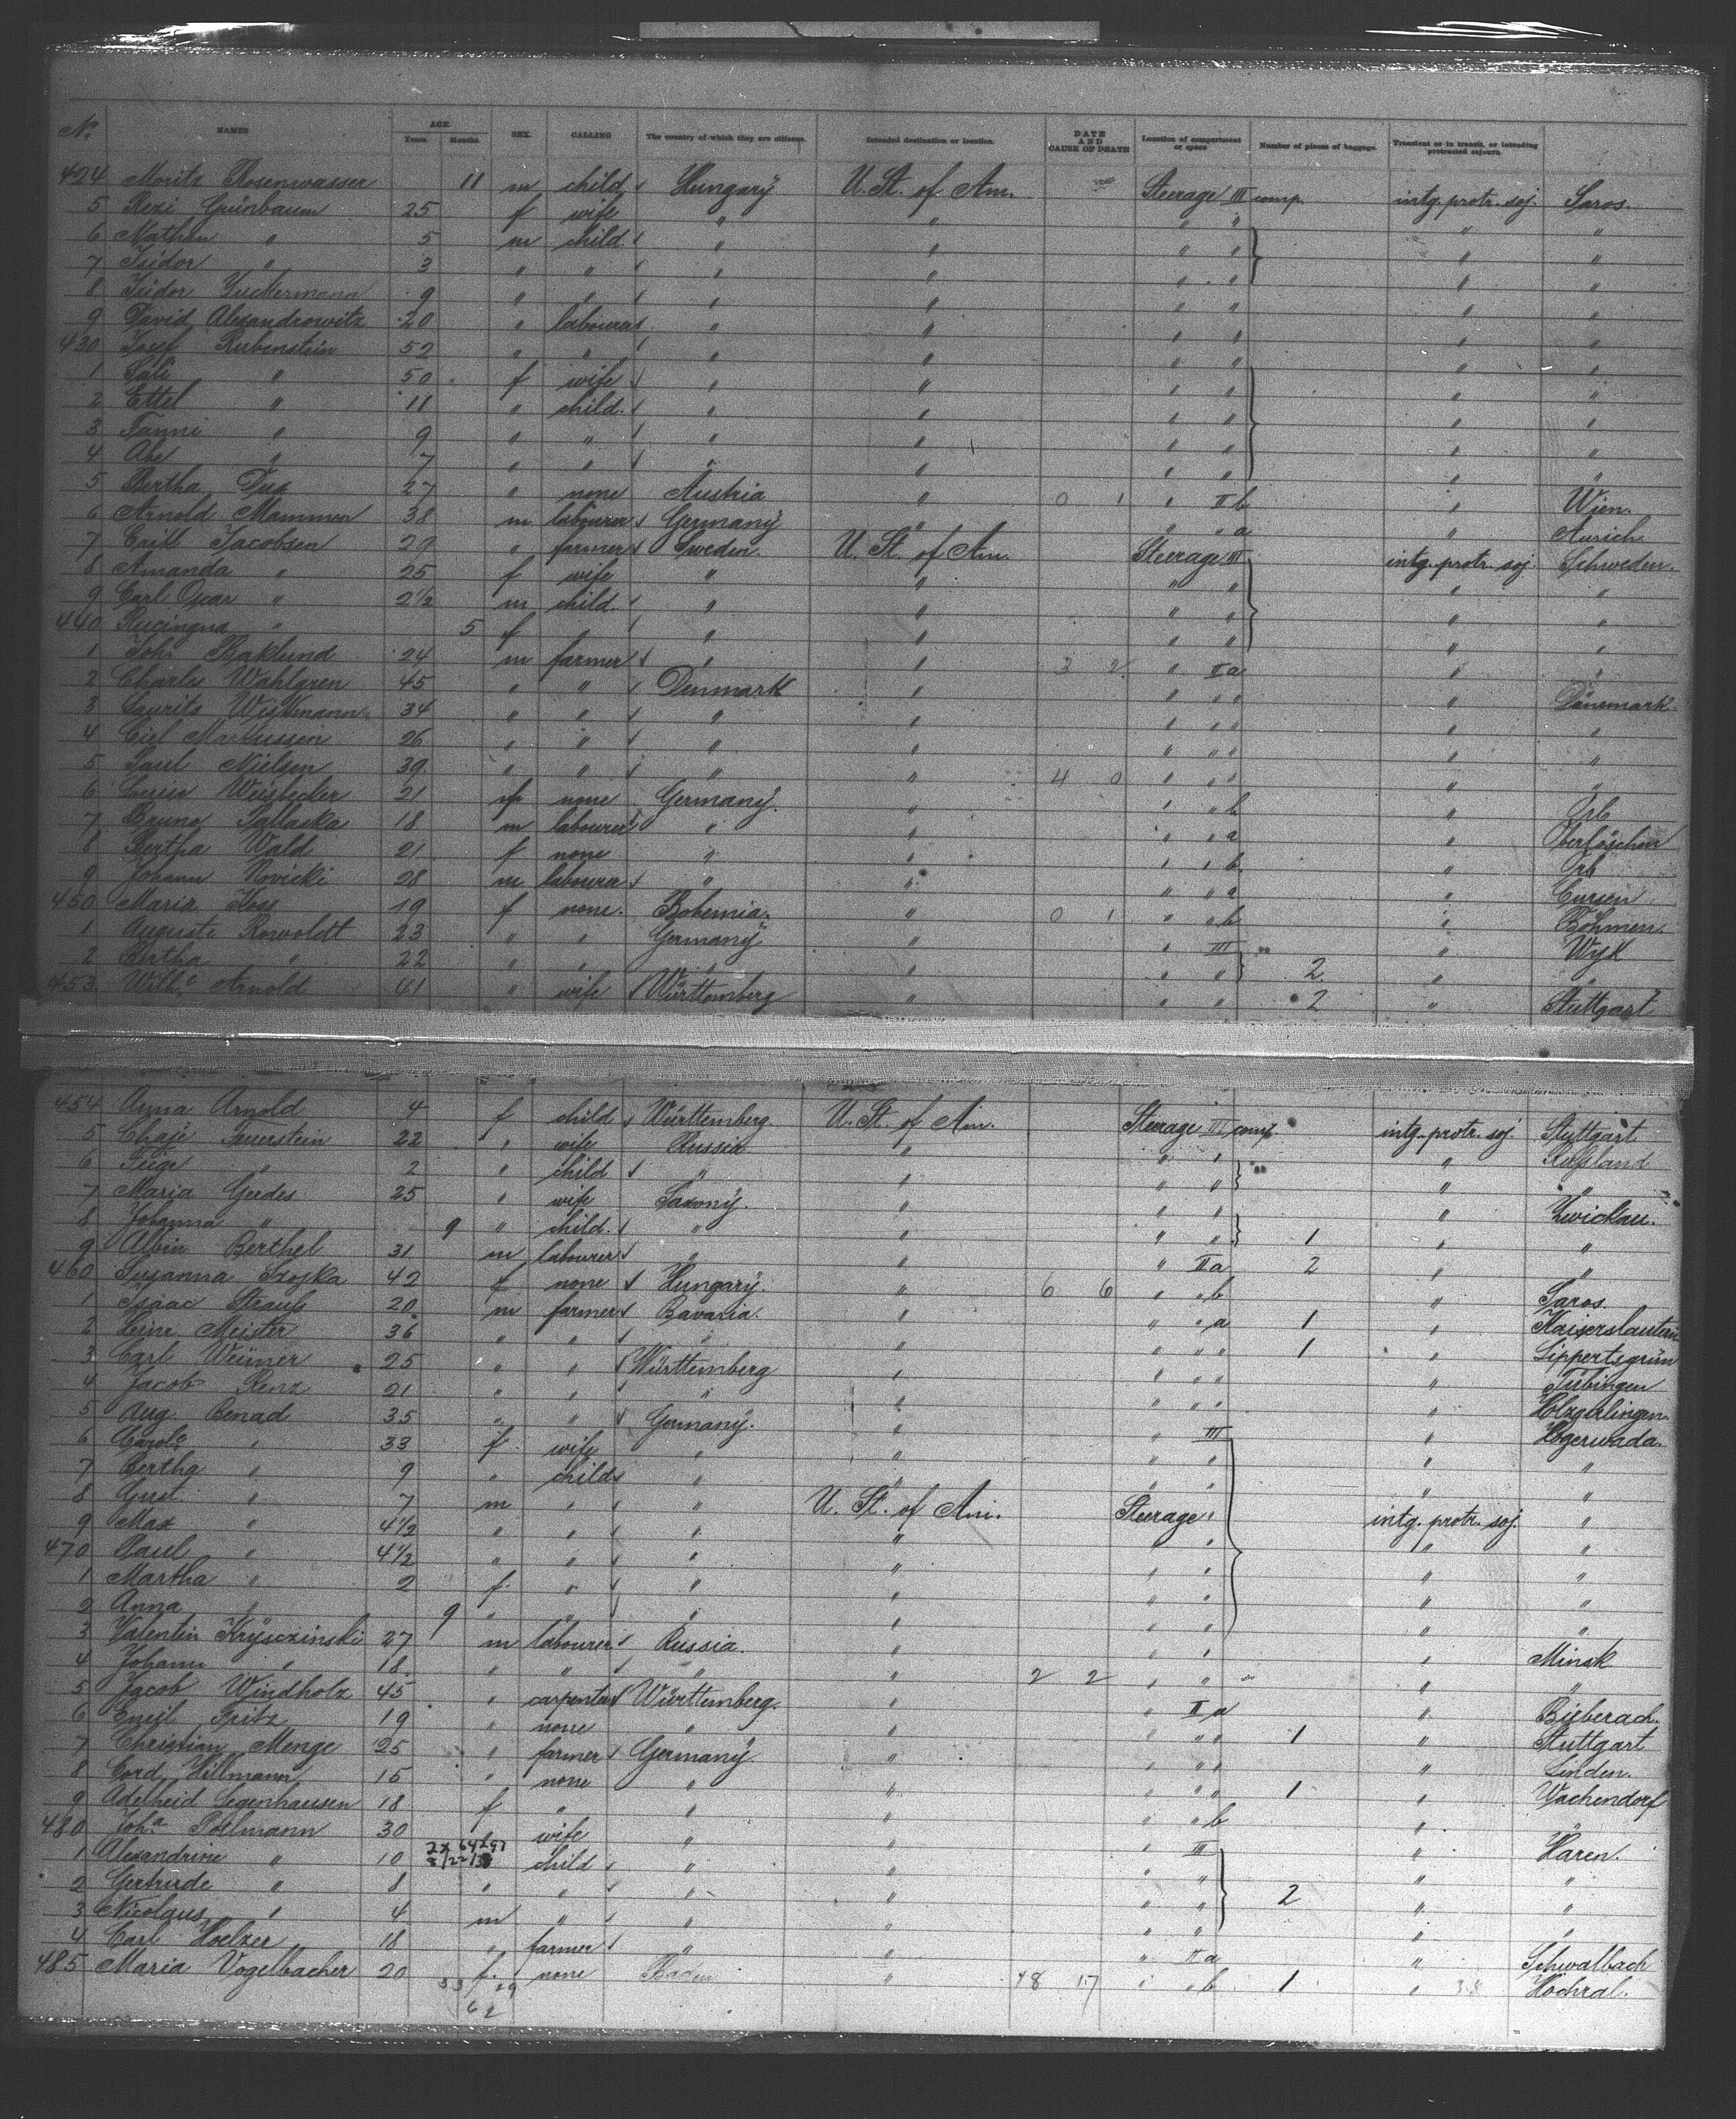 No. NAMES AGE. Years. Months. SEX. CALLING The country of which they are citizens. Intended destination or location. DATE AND CAUSE OF DEATH Location of compartment or space Number of pieces of baggage. Transient or in transit, or intending protracted sojourn.
424 Moritz Rosenwasser 11 m child Hungary U. St. of Am. Steerage III comp. intg. protr. soj. Saros.
5 Rezi Grünbaum 25 f wife " " " " " "
6 Nathan " 5 m child " " " " " "
7 Isidor " 3 " " " " " " " "
8 Isidor Zuckermann 9 " " " " " " " "
9 David Alexandrowitz 20 " labourer " " " " " "
430 Josef Rubenstein 52 " " " " " " " "
1 Sali " 50 f wife " " " " " "
2 Ettel " 11 " child " " " " " "
3 Fanni " 9 " " " " " " " "
4 Abe " 7 " " " " " " " "
5 Bertha Dux 27 " none Austria " 0 1 " II b " Wien.
6 Arnold Mammen 38 m labourer Germany " " " a " Aurich
7 Erik Jacobsen 29 " farmer Sweden. U. St. of Am. Steerage III intg. protr. soj. Schweden.
8 Amanda " 25 f wife " " " " " "
9 Carl Oscar " 2 1/2 m child " " " " " "
440 " 5 f " " " " " " "
1 Joh. Baklund 24 m farmer " " 3 2 " II a " "
2 Charles Wahlgren 45 " " Denmark " " " " " Dänemark.
3 Laurits 34 " " " " " " " " "
4 Markussen 26 " " " " " " " " "
5 Paul Nielsen 39 " " " " 4 0 " " " " "
6 Louise Weisbecker 21 f none Germany. " " " b " Orb
7 Bruno 18 m labourer " " " " a "
8 Bertha Wald 21 f none " " " " b. " Orb
9 Johann Novicki 28 m labourer " " " " a "
450 Maria Koss 19 f none. Bohemia. " 0 1 " " b " Böhmen.
1 Auguste Rowoldt 23 " " Germany " " III " Wyk
2 Bertha " 22 " " " " " " 2 " "
453 Wilh.e Arnold 41 " wife Württemberg " " " 2 " Stuttgart
454 Anna Arnold 4 f child Württemberg. U. St. of Am. Steerage III comp. intg. protr. soj. Stuttgart
5 Chaje Feuerstein 22 " wife Russia " " " " Rußland
6 Feige " 2 " child " " " " " "
7 Maria Gerdes 25 " wife Saxony. " " " " Zwickau.
8 Johanna " 9 " child. " " " " 1 " "
9 Albin Berthel 31 m labourer " " " II a 2 " "
460 Susanna 42 f none Hungary. " 6 6 " " b " Saros.
1 Isaac Strauß 20 m farmer Bavaria. " " " a 1 " Kaiserslautern
2 Heinr. Meister 36 " " " " " " " 1 " Lippertsgrün
3 Carl Weimer 25 " " Württemberg " " " " " Tübingen
4 Jacob Renz 21 " " " " " " " " Holzgerlingen
5 Aug. Benad 35 " " Germany. " " III " Hogerwada.
6 Carol.e " 33 f. wife " " " " " "
7 Bertha " 9 " child " " " " " "
8 Gust. " 7 m " " U. St. of Am. Steerage " intg. protr. soj. "
9 Max " 4 1/2 " " " " " " "
470 Paul " 4 1/2 " " " " " " "
1 Martha " 2 f. " " " " " "
2 Anna " 9 " " " " " " "
3 Valentin Krysczinski 27 m labourer Russia. " " " " Minsk
4 Johann " 18. " " " " 2 2 " " " " "
5 Jacob Windholz 45 " carpenter Württemberg. " " II a " Bieberach.
6 Emil Fritz 19 " none " " " " " 1 " Stuttgart
7 Christian Menge 25 " farmer Germany " " " " " Linden.
8 Cord Hillmann 15 " none " " " " " 1 " Wachendorf
9 Adelheid Segenhausen 18 f " " " " " b " "
480 Joh.a Pöllmann 30 " wife " " " III " Haren.
1 Alexandrine " 10 child " " " " " "
2 Gertrude " 8 " " " " " " 2 " "
3 Nicolaus " 4 m " " " " " " "
4 Carl Hoelzer 18 " farmer " " " II a " Schwalbach
485 Maria Vogelbacher 20 f. none Baden " 48 17 " " b 1 " Höchral.